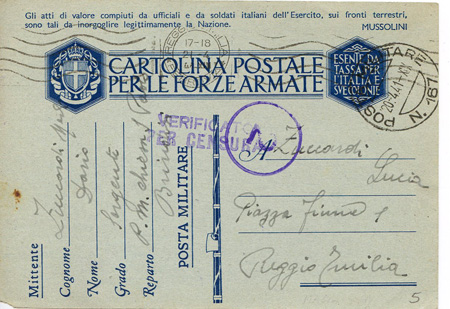 Gli atti di valore compiuti da ufficiali e da soldati italiani dell'Esercito, sui fronti terrestri,
sono tali da inorgoglire legittimamente la Nazione.
MUSSOLINI
17-18
CARTOLINA POSTALE
PER LE FORZE ARMATE
ESENTE DA
TASSA PER
L'ITALIA E
SVE COLONIE
N. 167
VERIFICATO
PER CENSURA
A Zuccardi
Lucia
Piazza Fiume 1
Reggio Emilia
5
POSTA MILITARE
Mittente
Cognome Zuccardi
Nome Dario
Grado Sergente
Reparto